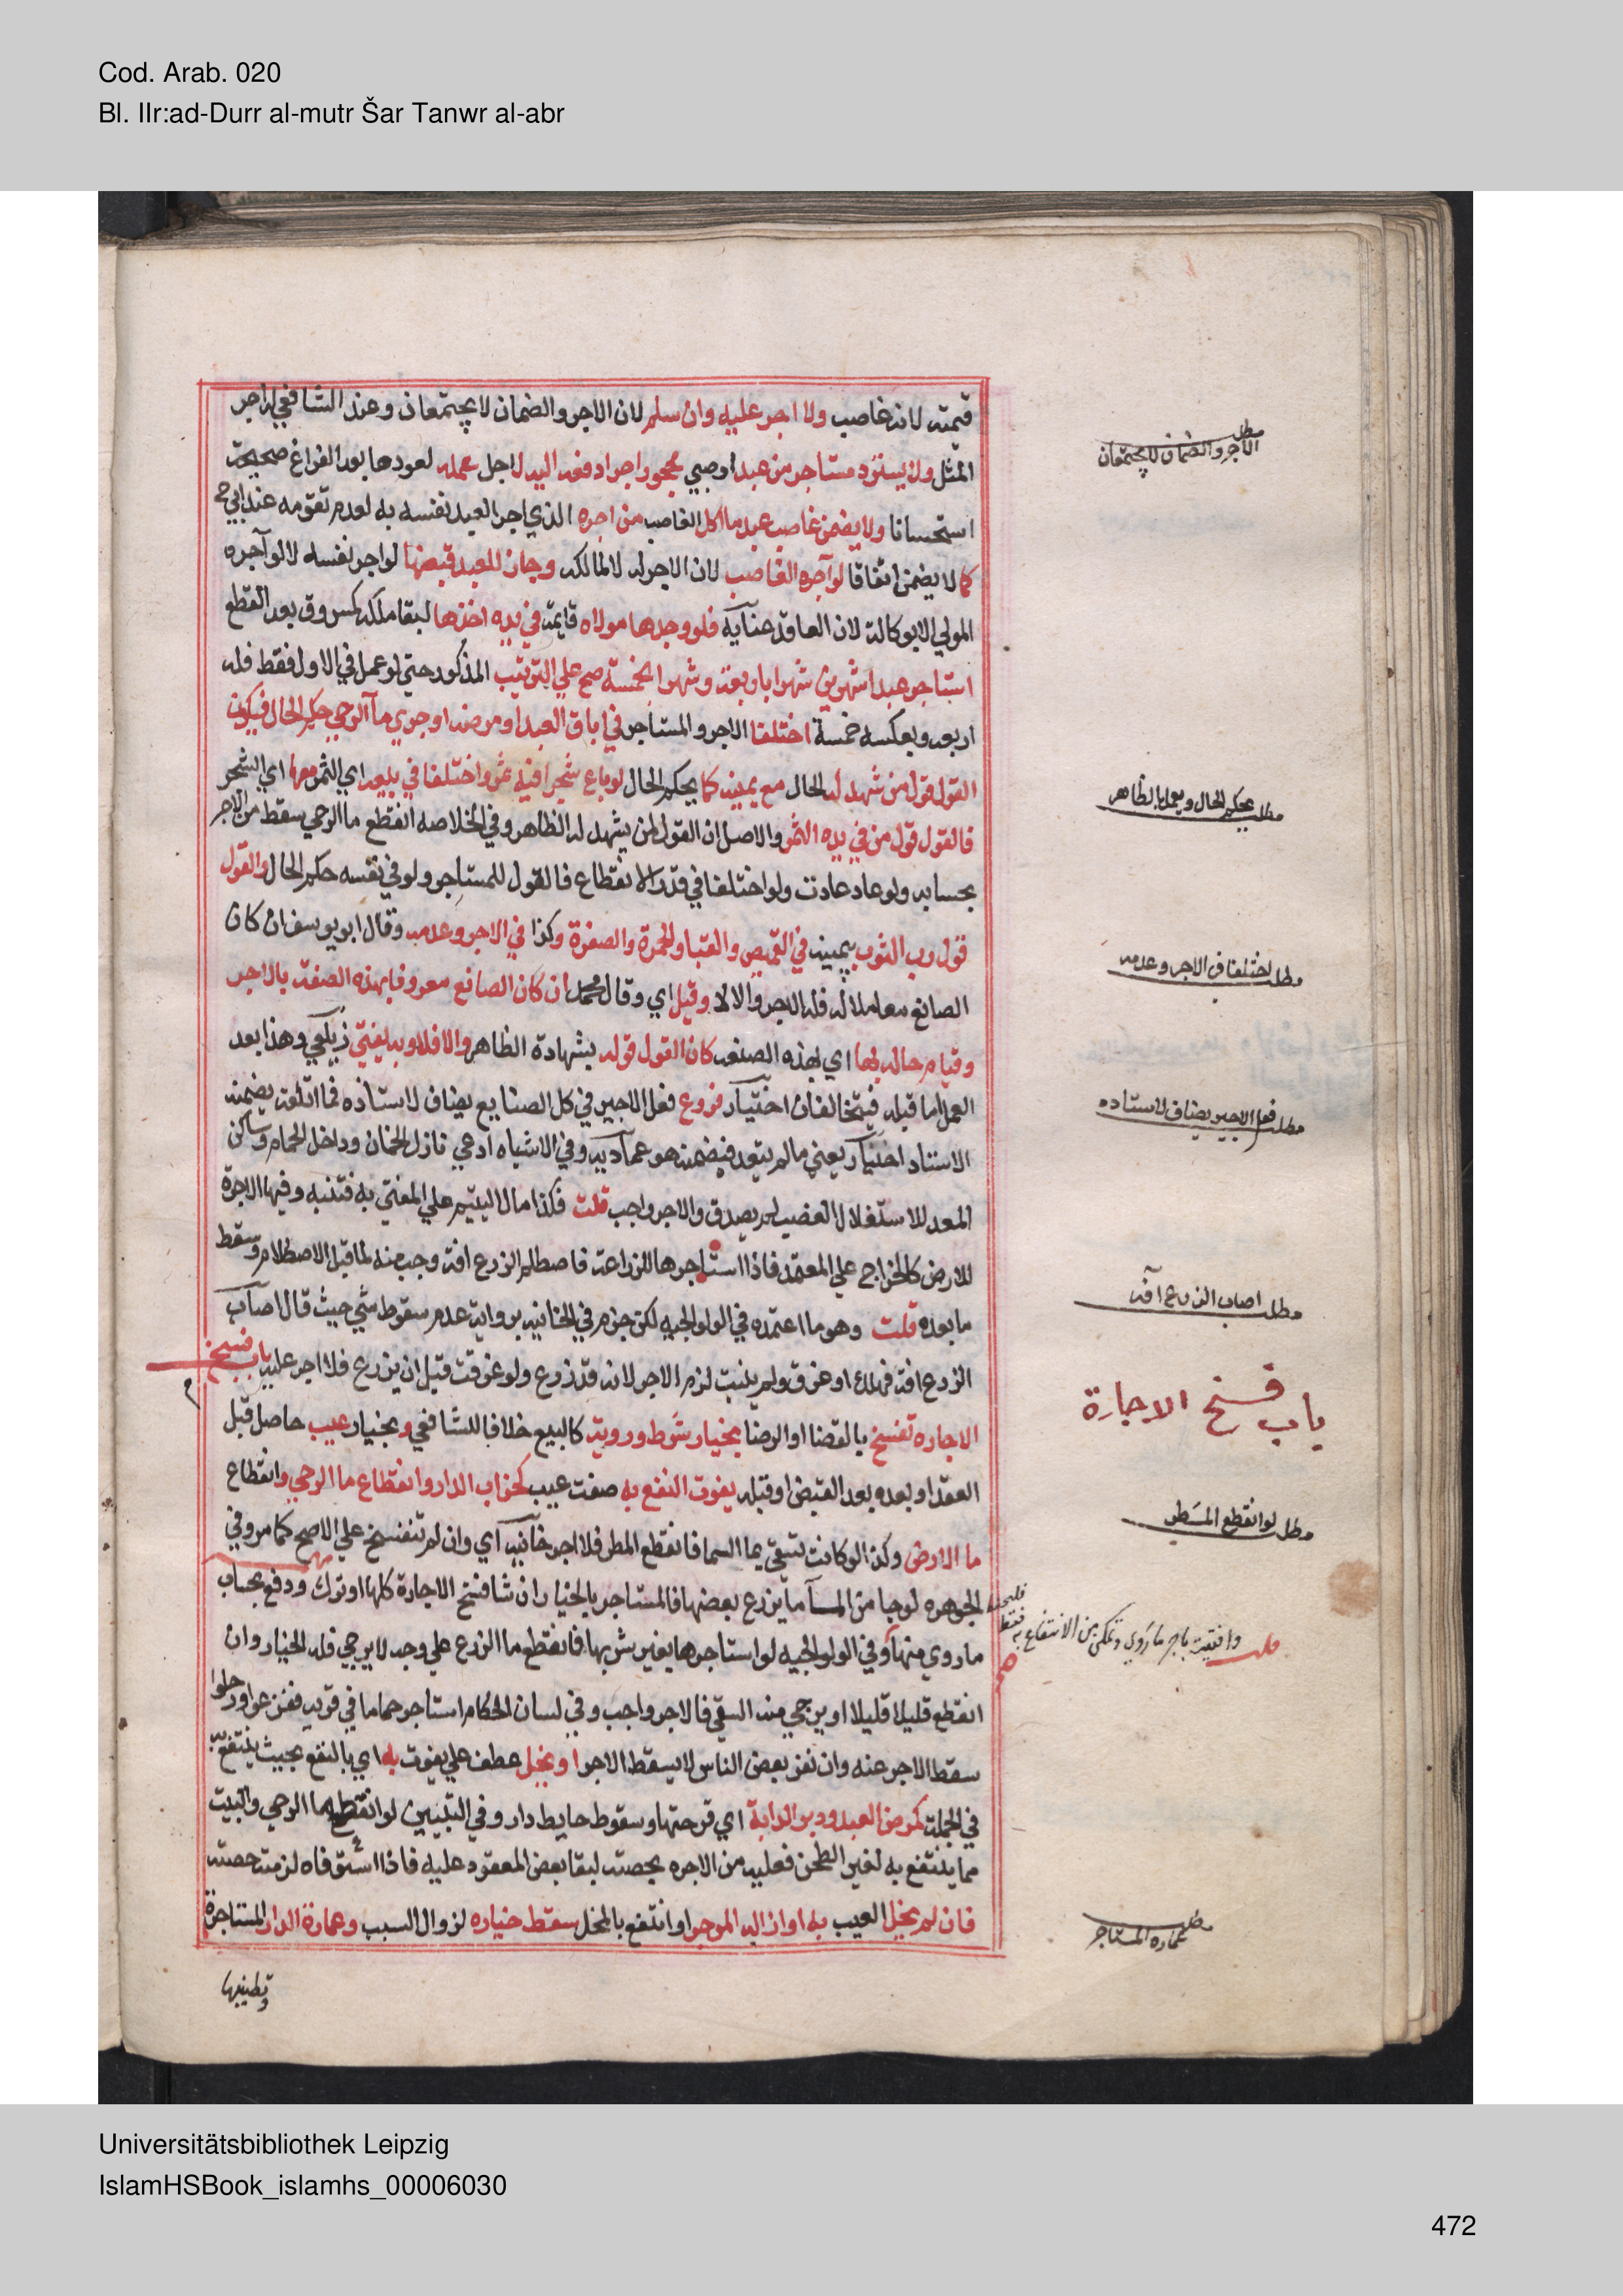 Cod. Arab. 020
Bl. IIr:ad-Durr al-mutr Šar Tanwr al-abr
قيمته لانه غاصب ولا اجر عليه وان سلم لان الاجر والضمان لا يجتمعان وعند الشافعي له اجر
المثل ولا يسترد مستاجر من عبد او صبي محجور اجرا دفعه اليه لاجل عمله لعودها بعد الفراغ صحيحة
استحسانا ولا يضمن غاصب عبد ما اكل الغاصب من اجره الذي اجر العبد نفسه به لعدم تقومه عند ابي ح
كما لا يضمن اتفاقا لو آجره الغاصب لان الاجر له لا لمالكه وجاز للعبد قبضها لو اجر نفسه لا لو آجره
المولي الا بوكالة لان العاقد عناية فلو وجدها مولاه قايمة في يده اخذها لبقا ملكه كمسروق بعد القطع
استاجر عبدا شهرين شهرا باربعة وشهرا بخمسة صح علي الترتيب المذكور حتي لو عمل في الاول فقط فله
اربعه وبعكسه خمسة اختلفا الاجر والمستاجر في اباق العبد او مرضه او جري مآ الرحي حكم الحال فيكون
القول قول من شهد له الحال مع يمينه كما يحكم الحال لو باع شجرا فيه ثمر واختلفا في بيعه اي الثمر معها اي الشجر
فالقول قول من في يده الثمر والاصل ان القول لمن يشهد له الظاهر وفي الخلاصه انقطع ما الرحي سقط من الاجر
بحسابه ولو عاد عادت ولو اختلفا في قدر الانقطاع فالقول للمستاجر ولو في نفسه حكم الحال والقول
قول رب الثوب بيمينه في القميص والقبا والحمرة والصفرة وكذا في الاجر وعدمه وقال ابو يوسف ان كان
الصانع معاملا له فله الاجر والا لا وقيل اي وقال محمد ان كان الصانع معروفا بهذه الصنعة بالاجر
وقيام حاله بها اي بهذه الصنعه كان القول قوله بشهادة الظاهر والا فلا وبه يفتي زيلعي وهذا بعد
العمل اما قبله فيتحالفان اختيار فروع فعل الاجير في كل الصنايع يضاف لاستاذه فما اتلفه يضمنه
الاستاد اختيار يعني ما لم يتعد فيضمنه هو عمادية وفي الاشباه ادعي نازل الخان وداخل الحمام وساكن
المعد للاستغلال الغصب لم يصدق والاجر واجب قلت فكذا مال اليتيم علي المفتي به فتنبه وفيها الاجرة
للارض كالخراج علي المعتمد فاذا استاجرها للزراعة فاصطلم الزرع افة وجب منه لما قبل الاصطلام وسقط
ما بعده قلت وهو ما اعتمده في الولوالجيه لكن جزم في الخانيه برواية عدم سقوط شي حيث قال اصاب
الزرع افة فهلك او غرق ولم ينبت لزم الاجر لانه قد زرع ولو غرقت قبل ان يزرع فلا اجر عليه باب فسخ
الاجاره تفسخ بالقضا او الرضا بخيار شرط وروية كالبيع خلافا للشافعي وبخيار عيب حاصل قبل
العقد او بعده بعد القبض او قبله يفوت النفع به صفت عيب كخراب الدار وانقطاع ما الرحي وانقطاع
ما الارض وكذا لو كانت تسقي بما السما فانقطع المطر فلا اجر خانيه اي وان لم تنفسخ علي الاصح كما مر وفي
الجوهره لو جا من المآ ما يزرع بعضها فالمستاجر بالخيار ان شا فسخ الاجارة كلها او ترك ودفع بحساب
ما روي منها وفي الولوالجيه لو استاجرها بغير شربها فانقطع ما الزرع علي وجه لا يرجي فله الخيار وان
انقطع قليلا قليلا او يرجي منه السقي فالاجر واجب وفي لسان الحكام استاجر حماما في قرية ففزعوا ورحلوا
سقط الاجر عنه وان نفر بعض الناس لا يسقط الاجر او يخل عطف علي يفوت به اي بالنفع بحيث ينتفع به
في الجملة كمرض العبد ودبر الدابة اي قرحتها وسقوط حايط دار وفي التبيين لو انقطع ما الرحي والبيت
مما ينتفع به لغير الطحن فعليه من الاجره بحصته لبقا بعض المعقود عليه فاذا استوفاه لزمته حصته
فان لم يخل العيب به او ازاله الموجر او انتفع بالمخل سقط خياره لزوال السبب وعمارة الدار المستاجرة
وتطيينها
مطل الاجر والضمان لا يجتمعان
مطلب يحكم الحال ويعمل بالظاهر
مطلب اختلفا في الاجر وعدمه
مطلب فعل الاجير يضاف لاستاده
مطلب اصاب الزرع آفه
باب فسخ الاجارة
مطلب لو انقطع المطر
قلت وافتيت باجر ما روي وتمكن من الانتفاع به فقط
مطلب عمارة المستاجر
Universitätsbibliothek Leipzig
IslamHSBook_islamhs_00006030
472